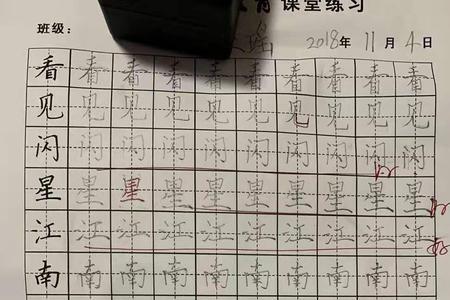 育 课堂练习
班级： 瑶 2018年 11月 4日
看 看 看 看 看 看 看 看 看
见 见 见 见 见 见 见 见 见
闪 闪 闪 闪 闪 闪 闪 闪 闪
星 星 星 星 星 星 星 星 星
江 江 江 江 江 江 江 江 江
南 南 南 南 南 南 南 南 南